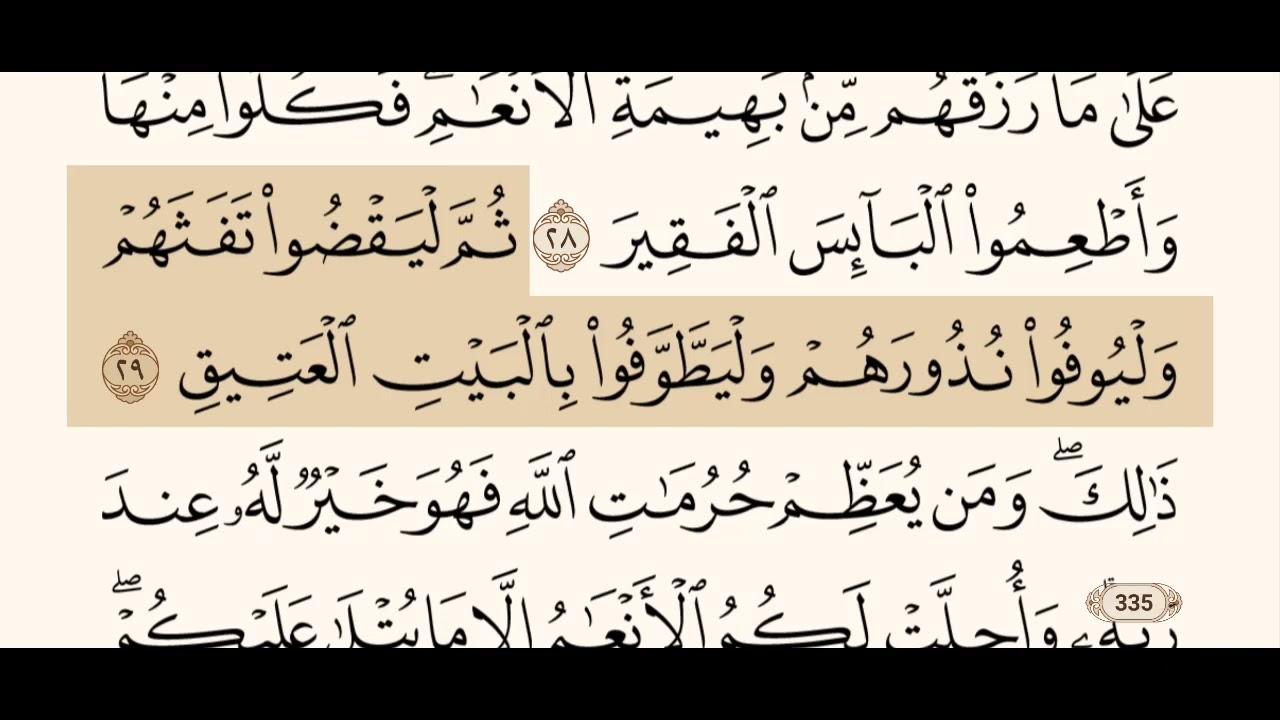 عَلَىٰ مَا رَزَقَهُم مِّنۢ بَهِيمَةِ ٱلْأَنْعَـٰمِ ۖ فَكُلُوا۟ مِنْهَا
وَأَطْعِمُوا۟ ٱلْبَآئِسَ ٱلْفَقِيرَ ٢٨ ثُمَّ لْيَقْضُوا۟ تَفَثَهُمْ
وَلْيُوفُوا۟ نُذُورَهُمْ وَلْيَطَّوَّفُوا۟ بِٱلْبَيْتِ ٱلْعَتِيقِ ٢٩
ذَٰلِكَ ۖ وَمَن يُعَظِّمْ حُرُمَـٰتِ ٱللَّهِ فَهُوَ خَيْرٌ لَّهُۥ عِندَ
رَبِّهِۦ ۗ وَأُحِلَّتْ لَكُمُ ٱلْأَنْعَـٰمُ إِلَّا مَا يُتْلَىٰ عَلَيْكُمْ ۖ
335